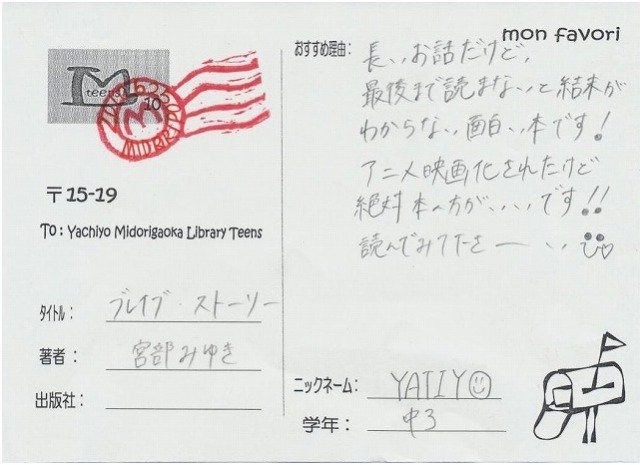 mon favori
teens
10
MIDORI
〒15-19
To: Yachiyo Midorigaoka Library Teens
タイトル： ブレイブ・ストーリー
著者： 宮部みゆき
出版社：
おすすめ理由： 長いお話だけど、
最後まで読まないと結末が
わからない面白い本です！
アニメ映画化されたけど
絶対本の方がいいです!!
読んでみてたさーい
ニックネーム： YATIY☺
学年： 中3